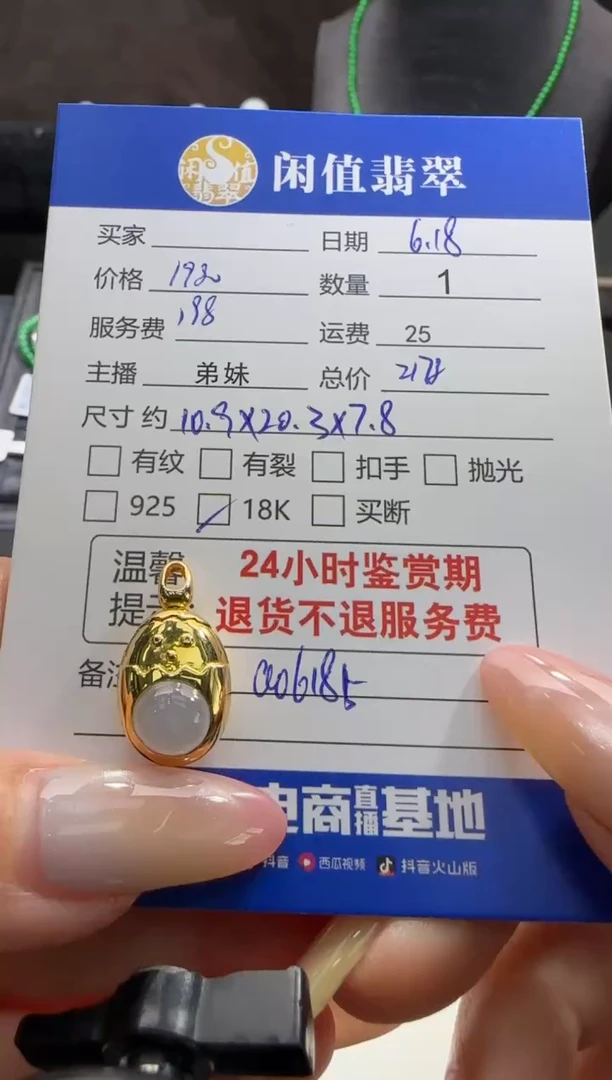 闲值翡翠
闲值翡翠
买家 日期 6.18
价格 1920 数量 1
服务费 198 运费 25
主播 弟妹 总价
尺寸 约 10.9X20.3X7.8
有纹 有裂 扣手 抛光
925 18K 买断
温馨 24小时鉴赏期
提示 退货不退服务费
备注
电商直播基地
抖音 西瓜视频 抖音火山版